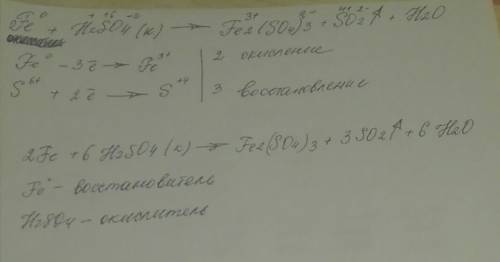 2Fe⁰ + H₂⁺S⁺⁶O₄⁻² (к) → Fe₂³⁺(SO₄)₃²⁻ + S⁴⁺O₂²⁻↑ + H₂O
Fe⁰ - 3ē → Fe³⁺ | 2 окисление
S⁶⁺ + 2ē → S⁺⁴ | 3 восстановление
2Fe + 6H₂SO₄ (к) → Fe₂(SO₄)₃ + 3SO₂↑ + 6H₂O
Fe⁰ - восстановитель
H₂SO₄ - окислитель